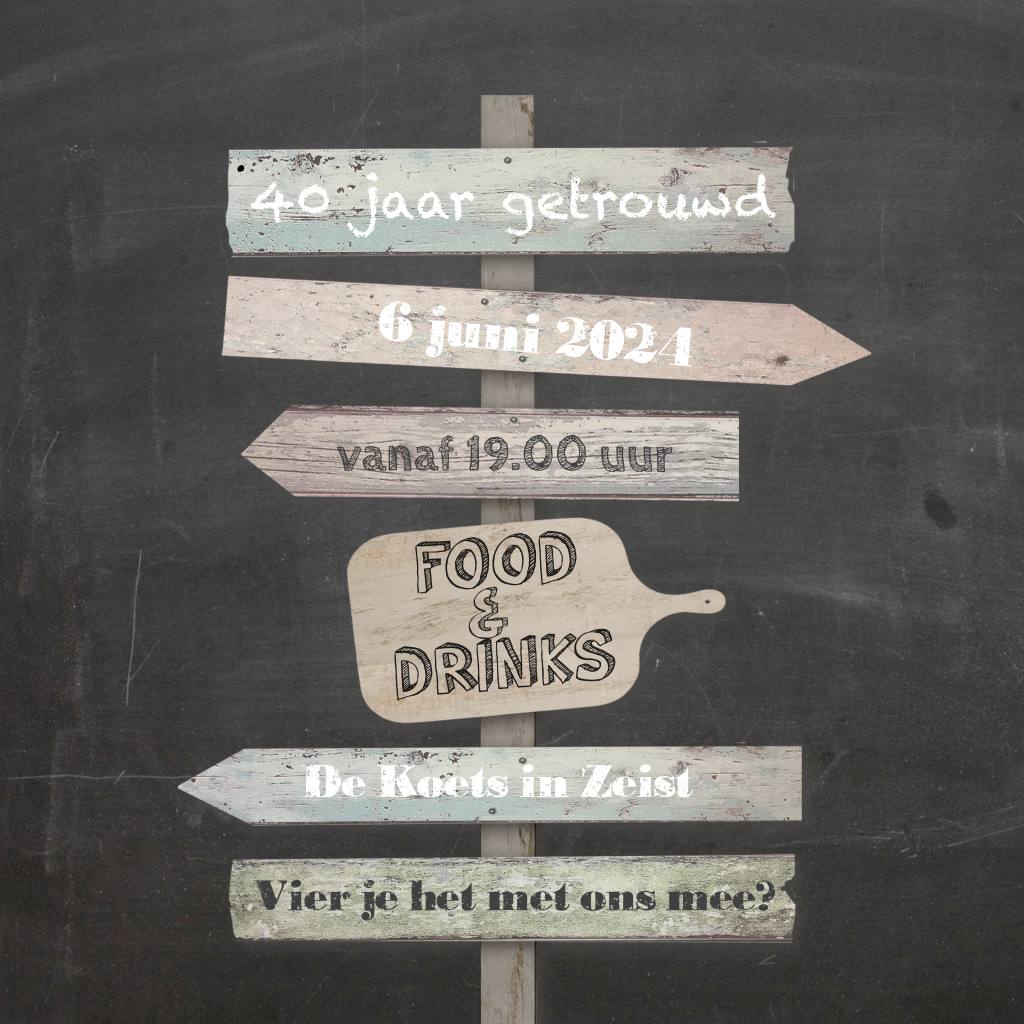 40 jaar getrouwd
6 juni 2024
vanaf 19.00 uur
FOOD
&
DRINKS
De Koets in Zeist
Vier je het met ons mee?